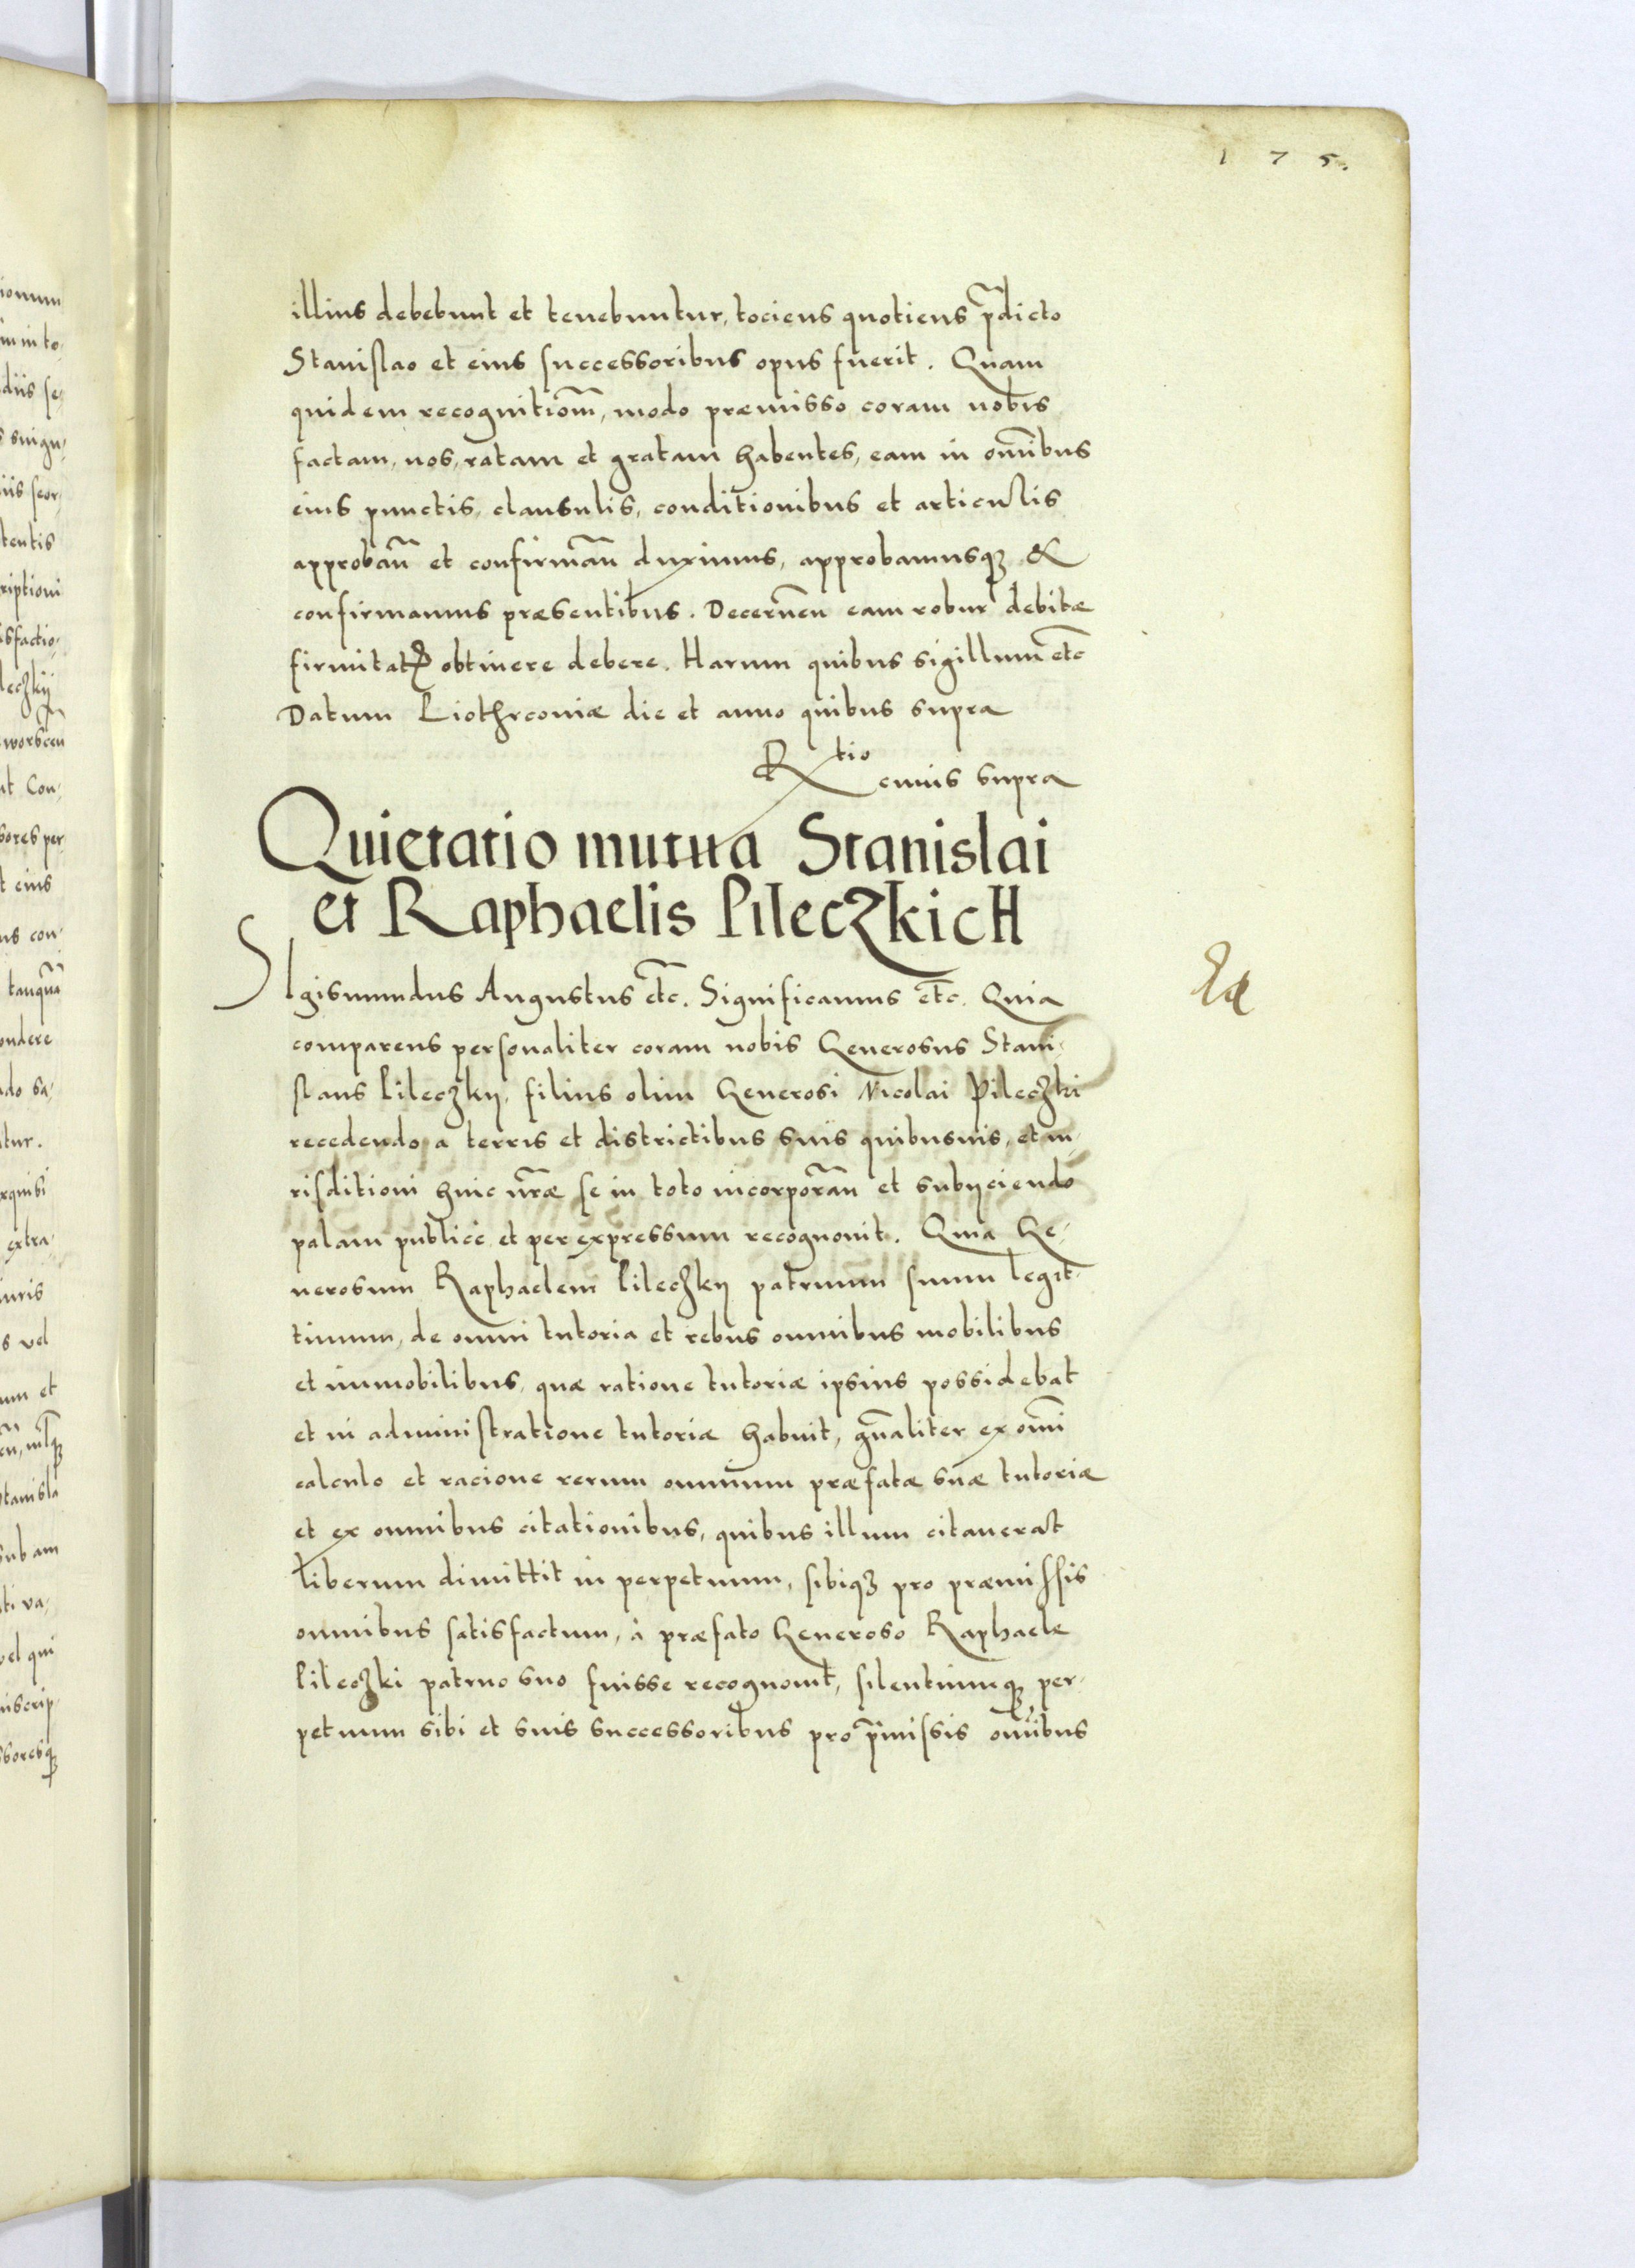 175.
illius debebunt et tenebuntur, tociens quotiens p̃dicto
Stanislao et eius successoribus opus fuerit. Quam
quidem recognitiom̃, modo præmisso coram nobis
factam, nos, ratam et gratam habentes, eam in om̃ibus
eius punctis, clausulis, conditionibus et articulis
approbañ et confirmañ duximus, approbamusqꝫ &
confirmamus præsentibus. Decerneñ eam robur debitæ
firmitatꝭ obtinere debere. Harum quibus sigillum etc̃
Datum Piothrcoviæ die et anno quibus supra
Rtio cuius supra
Quietatio mutua Stanislai
et Raphaelis Pileczkich
SIgismundus Augustus etc̃. Significamus etc̃. Quia
comparens personaliter coram nobis Generosus Stani-
slaus Pileczky, filius olim Generosi Nicolai Pileczki
recedendo a terris et districtibus suis quibusuis, et iu-
risditioni huic nr̃æ se in toto incorporañ et subijciendo
palam publice et per expressum recognouit. Quia Ge-
nerosum Raphaelem Pileczky patruum suum legit-
timum, de omni tutoria et rebus omnibus mobilibus
et immobilibus, quæ ratione tutoriæ ipsius possidebat
et in administratione tutoriæ habuit, gñaliter ex om̃i
calculo et racione rerum omnium præfatæ suæ tutoriæ
et ex omnibus citationibus, quibus illum citauerat
liberum dimittit in perpetuum, sibiqꝫ pro præmissis
omnibus satisfactum, à præfato Generoso Raphaele
Pileczki patruo suo fuisse recognouit, silentiumqꝫ per-
petuum sibi et suis successoribus pro p̃missis om̃ibus